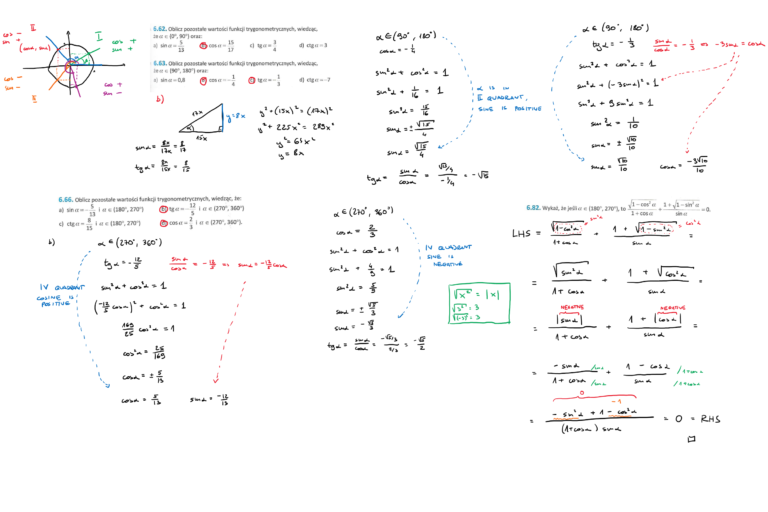 cos − II
sin +
(cosα, sinα)
I cos +
sin +
cos −
sin −
cos +
sin −
6.62. Oblicz pozostałe wartości funkcji trygonometrycznych, wiedząc,
że α ∈ (0°, 90°) oraz:
a) sin α = 5/13 b) cos α = 15/17 c) tg α = 3/4 d) ctg α = 3
6.63. Oblicz pozostałe wartości funkcji trygonometrycznych, wiedząc,
że α ∈ (90°, 180°) oraz:
a) sin α = 0,8 b) cos α = −1/4 c) tg α = −1/3 d) ctg α = −7
b)
17x
y = 8x
15x
α
sinα = 8x/17x = 8/17
tgα = 8x/15x = 8/15
y² + (15x)² = (17x)²
y² + 225x² = 289x²
y² = 64x²
y = 8x
α ∈ (90°, 180°)
cosα = −1/4
sin²α + cos²α = 1
sin²α + 1/16 = 1
sin²α = 15/16
sinα = ± √15/4
sinα = √15/4
tgα = sinα/cosα = (√15/4)/(−1/4) = −√15
α IS IN
II QUADRANT,
SINE IS POSITIVE
α ∈ (90°, 180°)
tgα = −1/3
sinα/cosα = −1/3 ⇒ −3sinα = cosα
sin²α + cos²α = 1
sin²α + (−3sinα)² = 1
sin²α + 9sin²α = 1
sin²α = 1/10
sinα = ± √10/10
sinα = √10/10
cosα = −3√10/10
6.66. Oblicz pozostałe wartości funkcji trygonometrycznych, wiedząc, że:
a) sin α = −5/13 i α ∈ (180°, 270°) b) tg α = −12/5 i α ∈ (270°, 360°)
c) ctg α = 8/15 i α ∈ (180°, 270°) d) cos α = 2/3 i α ∈ (270°, 360°).
b)
α ∈ (270°, 360°)
tgα = −12/5
sinα/cosα = −12/5 ⇒ sinα = −12/5 cosα
IV QUADRANT
COSINE IS
POSITIVE
sin²α + cos²α = 1
(−12/5 cosα)² + cos²α = 1
169/25 cos²α = 1
cos²α = 25/169
cosα = ± 5/13
cosα = 5/13
sinα = −12/13
α ∈ (270°, 360°)
cosα = 2/3
sin²α + cos²α = 1
sin²α + 4/9 = 1
sin²α = 5/9
sinα = ± √5/3
sinα = −√5/3
tgα = sinα/cosα = (−√5/3)/(2/3) = −√5/2
IV QUADRANT
SINE IS
NEGATIVE
√x² = |x|
√3² = 3
√(−3)² = 3
6.82. Wykaż, że jeśli α ∈ (180°, 270°), to √(1−cos²α)/(1+cos α) + (1+√(1−sin²α))/sin α = 0.
LHS = √(1−cos²α)/(1+cosα) + (1 + √(1−sin²α))/sinα =
sin²α
cos²α
= √sin²α/(1+cosα) + (1 + √cos²α)/sinα =
NEGATIVE
NEGATIVE
= |sinα|/(1+cosα) + (1 + |cosα|)/sinα =
= −sinα/(1+cosα) /sinα /sinα + (1 − cosα)/sinα /1+cosα /1+cosα
0
−1
= (−sin²α + 1 − cos²α)/((1+cosα) sinα) = 0 = RHS